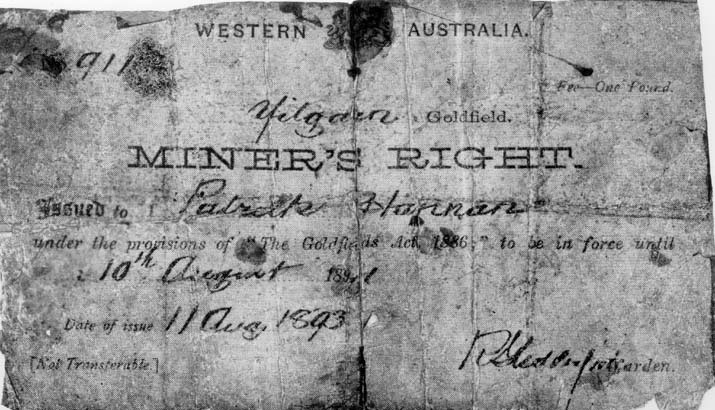 WESTERN AUSTRALIA.
No 911
Fee—One Pound.
Yilgarn Goldfield.
MINER'S RIGHT.
Issued to Patrick Hannan
under the provisions of "The Goldfields Act, 1886," to be in force until
10th August 1894
Date of issue 11 Aug. 1893
[Not Transferable.] Warden.